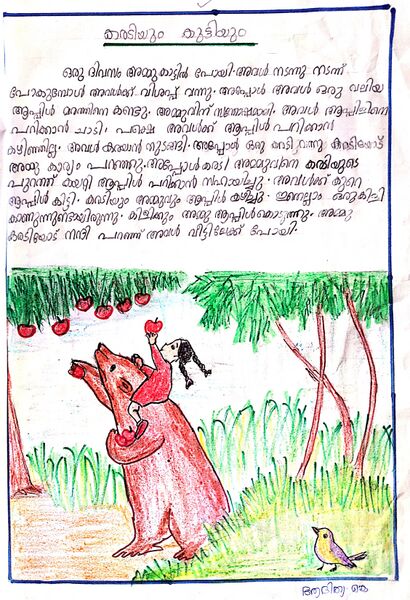 കരടിയും കുട്ടിയും
ഒരു ദിവസം അമ്മു കാട്ടിൽ പോയി. അവൾ നടന്നു നടന്ന്
പോകുമ്പോൾ അവൾക്ക് വിശപ്പ് വന്നു. അപ്പോൾ അവൾ ഒരു വലിയ
ആപ്പിൾ മരത്തിനെ കണ്ടു. അമ്മുവിന് സന്തോഷമായി. അവൾ ആപ്പിളിനെ
പറിക്കാൻ ചാടി. പക്ഷെ അവൾക്ക് ആപ്പിൾ പറിക്കാൻ
കഴിഞ്ഞില്ല. അവൾ കരയാൻ തുടങ്ങി. അപ്പോൾ ഒരു കരടി വന്നു. കരടിയോട്
അമ്മു കാര്യം പറഞ്ഞു. അപ്പോൾ കരടി അമ്മുവിനെ കരടിയുടെ
പുറത്ത് കയറ്റി ആപ്പിൾ പറിക്കാൻ സഹായിച്ചു. അവൾക്ക് കുറെ
ആപ്പിൾ കിട്ടി. കരടിയും അമ്മുവും ആപ്പിൾ കഴിച്ചു. ഇതെല്ലാം ഒരു കിളി
കാണുന്നുണ്ടായിരുന്നു. കിളിക്കും അമ്മു ആപ്പിൾ കൊടുത്തു. അമ്മു
കരടിയോട് നന്ദി പറഞ്ഞ് അവൾ വീട്ടിലേക്ക് പോയി.